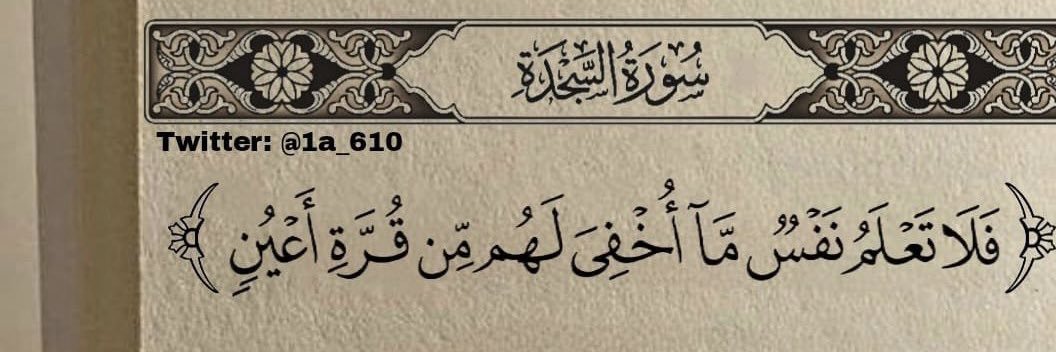 سُورَةُ السَّجْدَةِ
Twitter: @1a_610
﴿فَلَا تَعْلَمُ نَفْسٌ مَّآ أُخْفِىَ لَهُم مِّن قُرَّةِ أَعْيُنٍ﴾